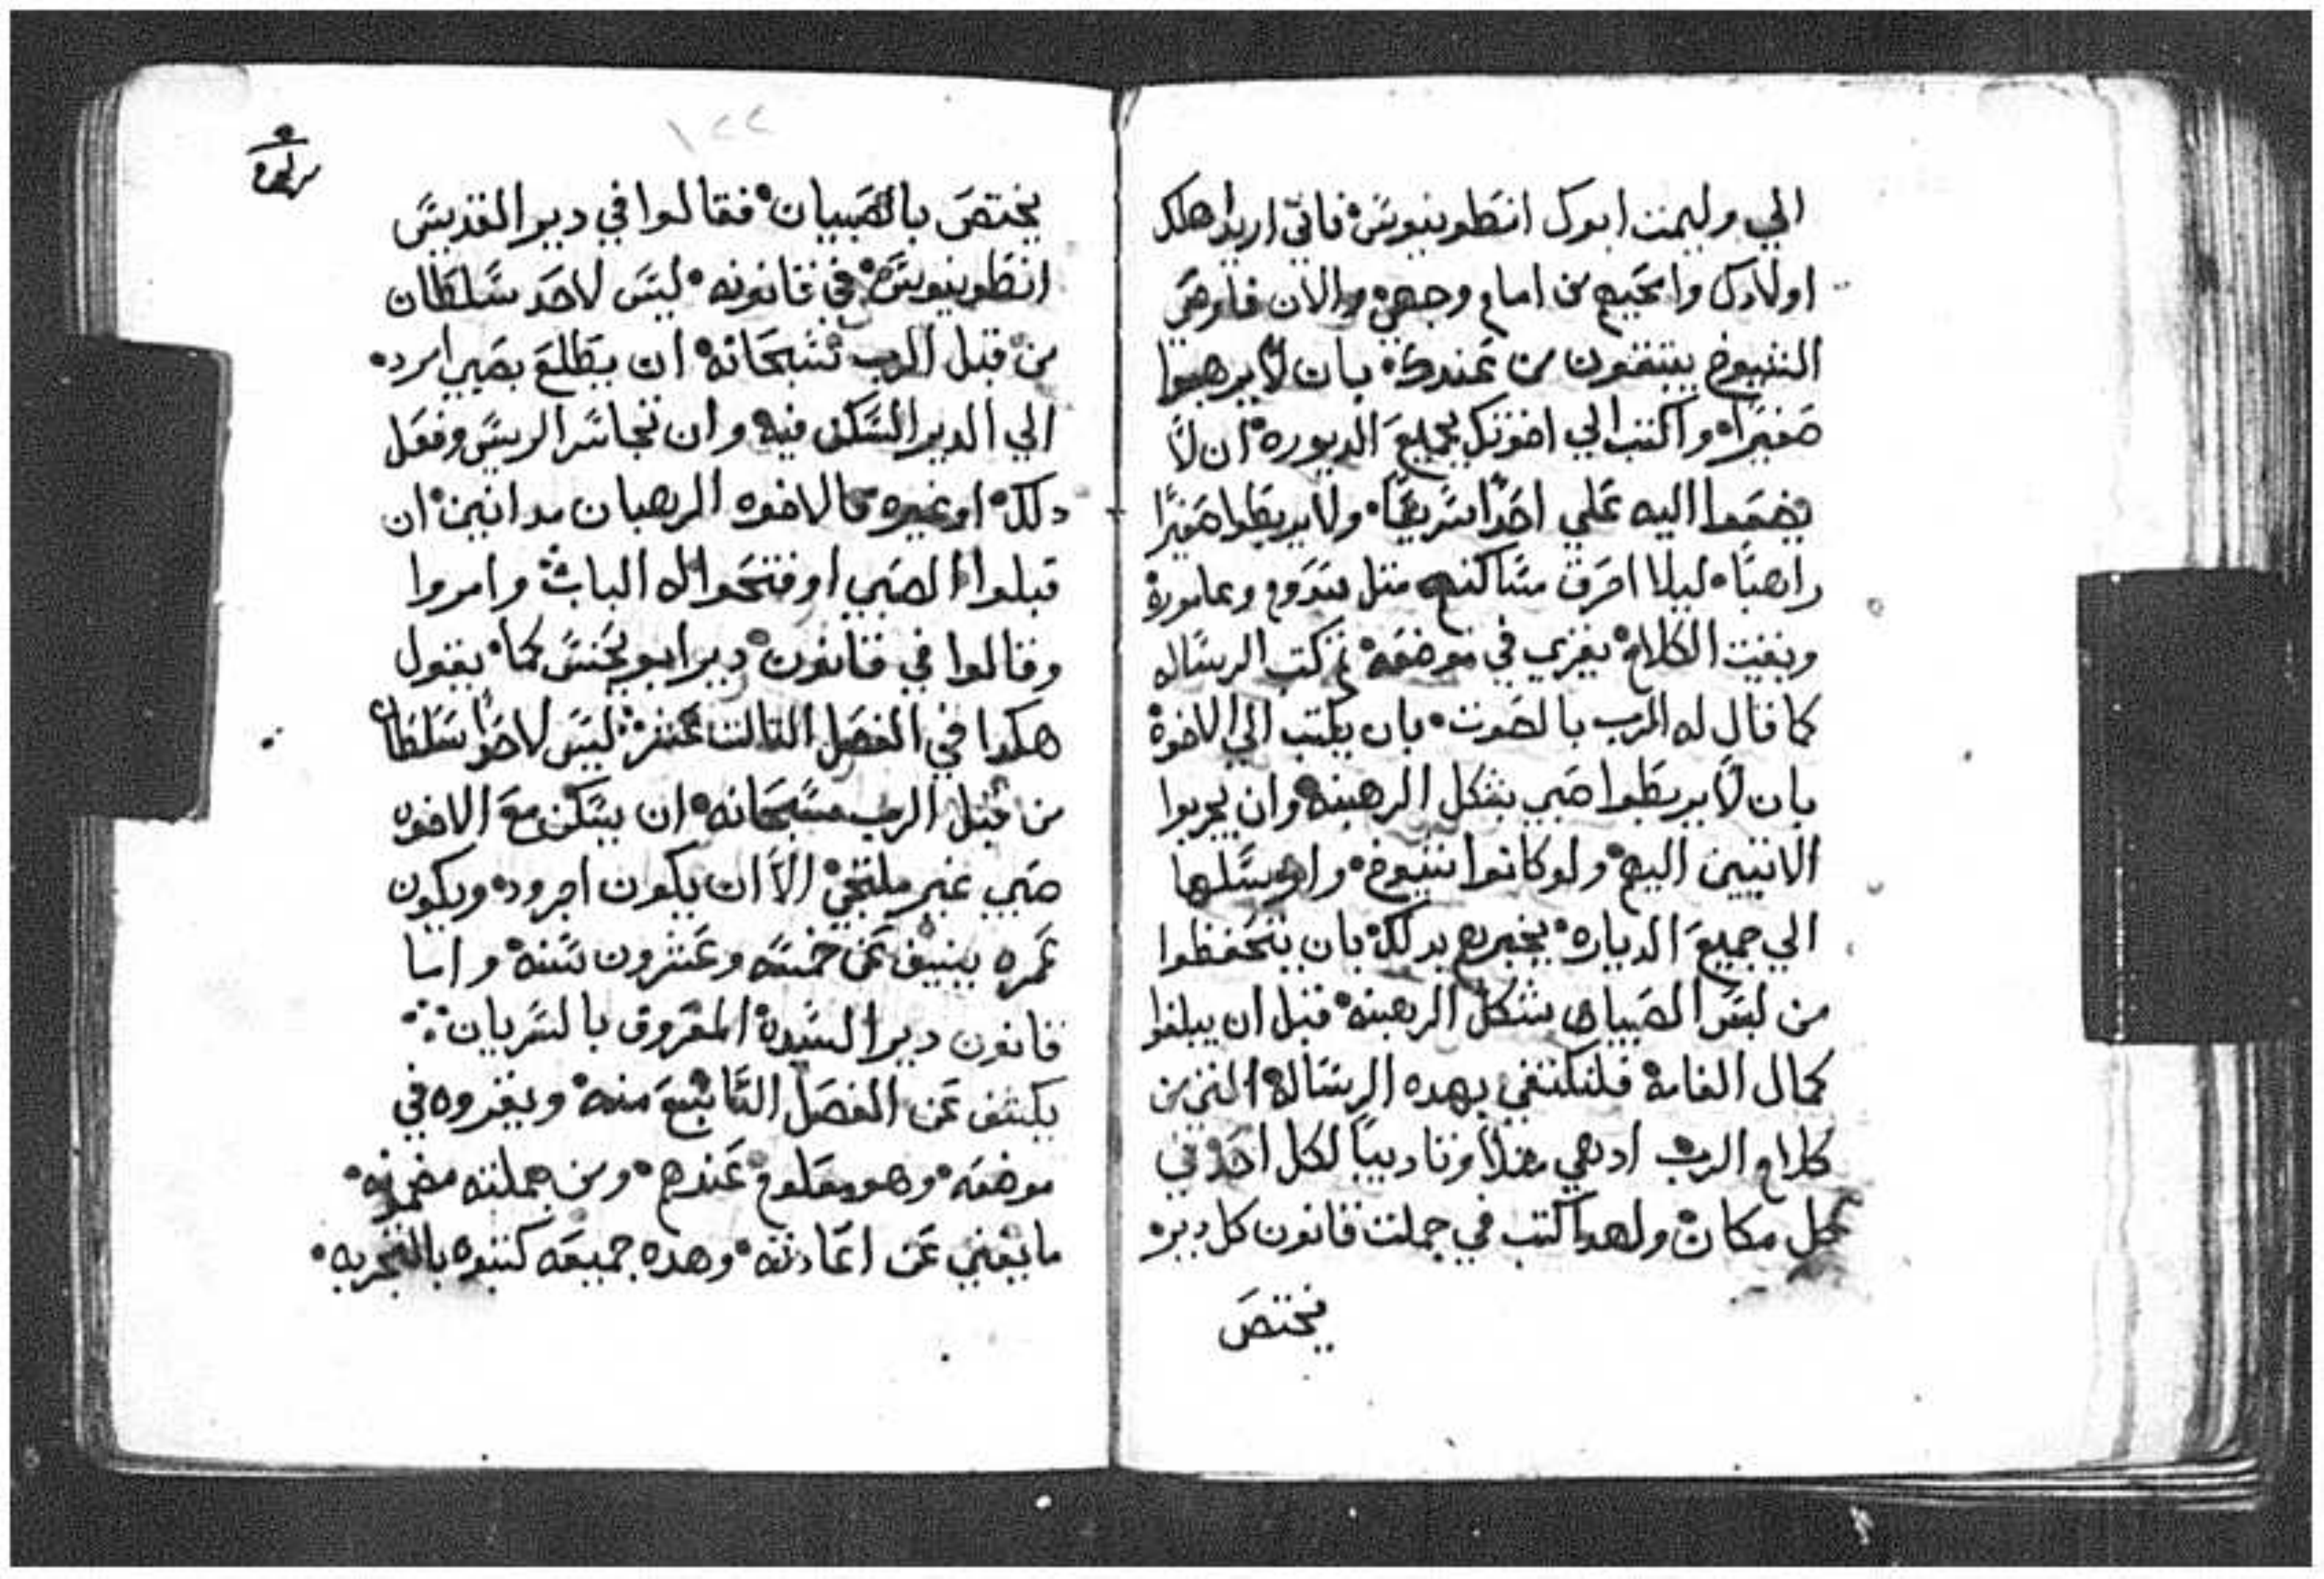 الي وليمت ابوك انطونيوس فاني اريد اهلك
اولادك وامحيهم من امام وجهي والان فاوص
الشيوخ يبتفون من عندك بان لا يرهبوا
صغيرا واكتب الي اخوتك بجميع الديوره ان لا
يضموا اليه علي احدا سريعا ولا يربطوا صغيرا
راهبا ليلا احرق مساكنهم متل سدوم وعامورة
وبقيت الكلام يقري في موضعه تم كتب الرساله
كما قال له الرب بالصوت بان يكتب الي الاخوة
بان لا يربطوا صبي بشكل الرهبنه وان يجربوا
الاتيين اليهم ولو كانوا شيوخ وارسلها
الي جميع الدياره يخبرهم بدلك بان يتحفظوا
من لبس الصبيان شكل الرهبنه قبل ان يبلغوا
كمال القامه فلنكتفي بهده الرسالة التي من
كلام الرب اد هي عدلا وتاديبا لكل احد في
كل مكان ولهدا كتب في جملت قانون كل دير
يختص
١٢٢
يختص بالصبيان فقالوا في دير القديس
انطونيوس في قانونه ليس لاحد سلطان
من قبل الرب سبحانه ان يطلع بصبي امرد
الي الدير السكن فيه وان تجاسر الريس وفعل
دلك او غيره فالاخوه الرهبان مدانين ان
قبلوا الصبي او فتحوا له الباب وامروا
وقالوا في قانون دير ابو يحنس كما يقول
هكدا في الفصل التالت عشر ليس لاحدا سلطان
من قبل الرب سبحانه ان يسكن مع الاخوه
صبي غير ملتحي الا ان يكون اجرود ويكون
عمره ينيف عن خمسه وعشرون سنه واما
قانون دير السيدة المعروف بالسريان
يكشف عن الفصل التاسع منه ويقروه في
موضعه وهو معلوم عندهم ومن جملته مضمونه
ما يغني عن اعادته وهده جميعه كتبوه بالتجربه